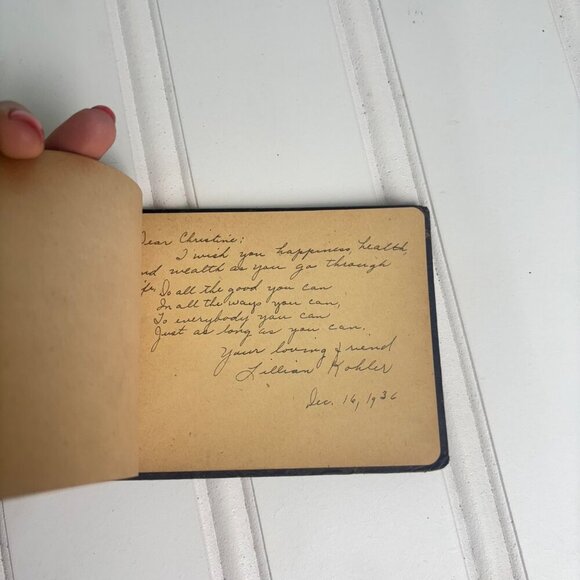 Dear Christine:
I wish you happiness, health,
and wealth as you go through
life. Do all the good you can
In all the ways you can,
To everybody you can
Just as long as you can.
Your loving friend
Lillian Kohler
Dec. 16, 1936